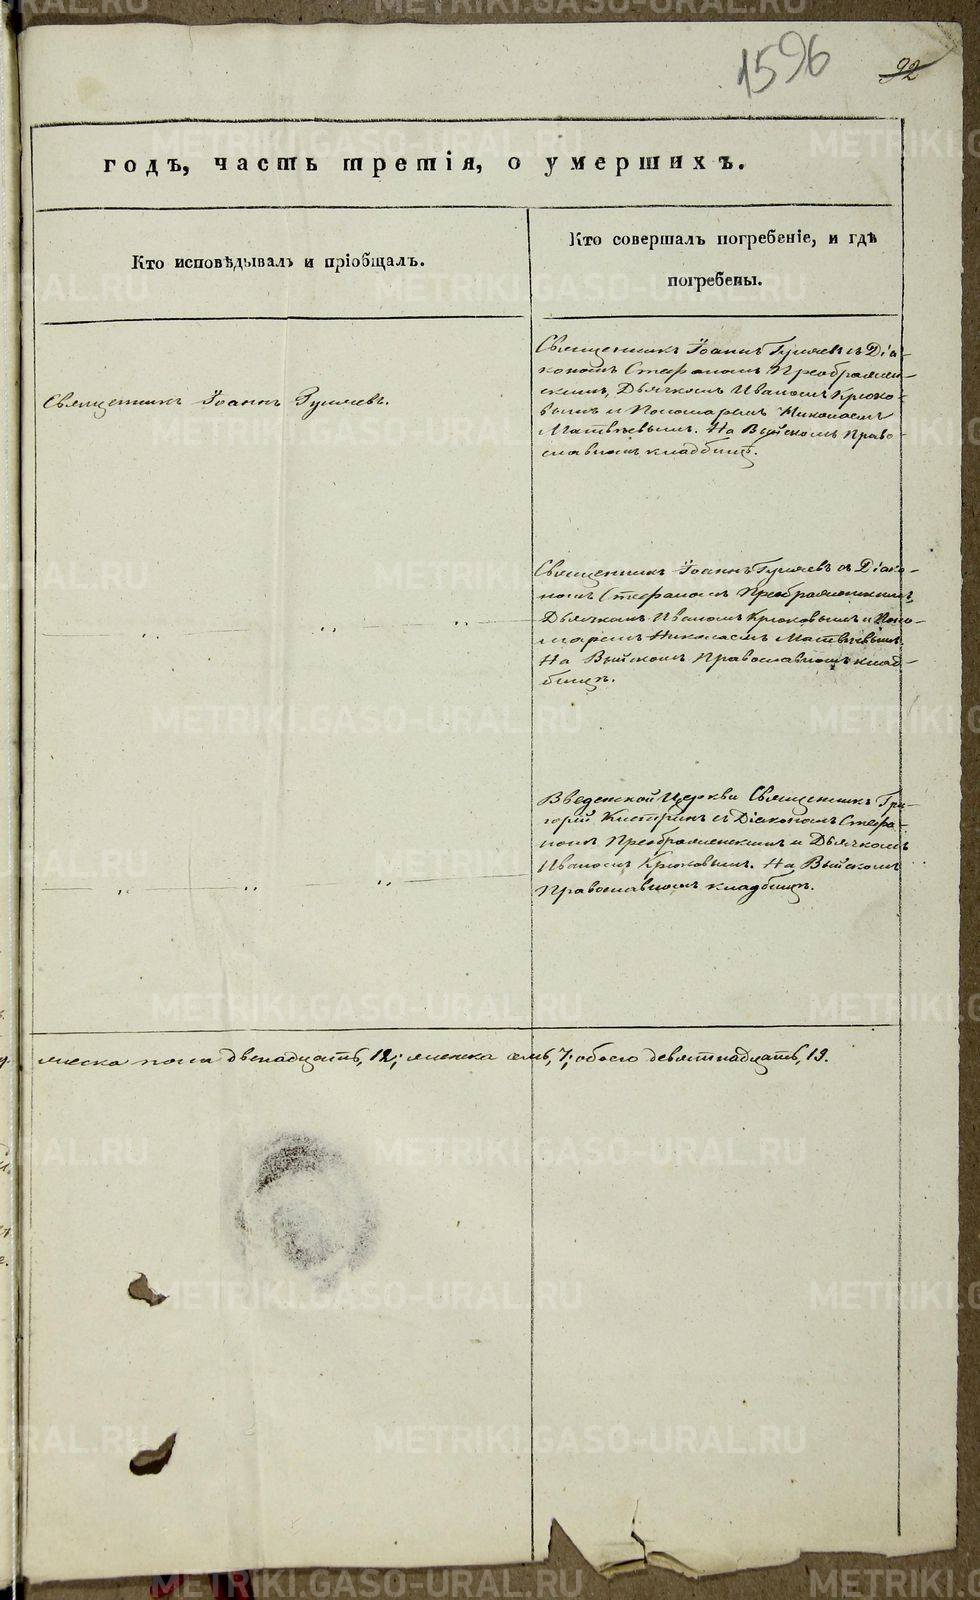 1596
92
годъ, часть третія, о умершихъ.
Кто исповѣдывалъ и пріобщалъ.
Кто совершалъ погребеніе, и гдѣ
погребены.
Священникъ Іоаннъ Гуляевъ.
Священникъ Іоаннъ Гуляевъ съ Діа-
кономъ Стефаномъ Преображен-
скимъ, Дьячкомъ Иваномъ Крюко-
вымъ и Пономаремъ Николаемъ
Матвѣевымъ. На Выйскомъ Право-
славномъ кладбищѣ.
Священникъ Іоаннъ Гуляевъ съ Діако-
номъ Стефаномъ Преображенскимъ,
Дьячкомъ Иваномъ Крюковымъ и Поно-
маремъ Николаемъ Матвѣевымъ.
На Выйскомъ Православномъ клад-
бищѣ.
Введенской Церкви Священникъ Гри-
горій съ Діакономъ Стефа-
номъ Преображенскимъ и Дьячкомъ
Иваномъ Крюковымъ. На Выйскомъ
Православномъ кладбищѣ.
жеска пола двенадцать, 12; женска семь, 7; обоего девятнадцать, 19.
METRIKI.GASO-URAL.RU